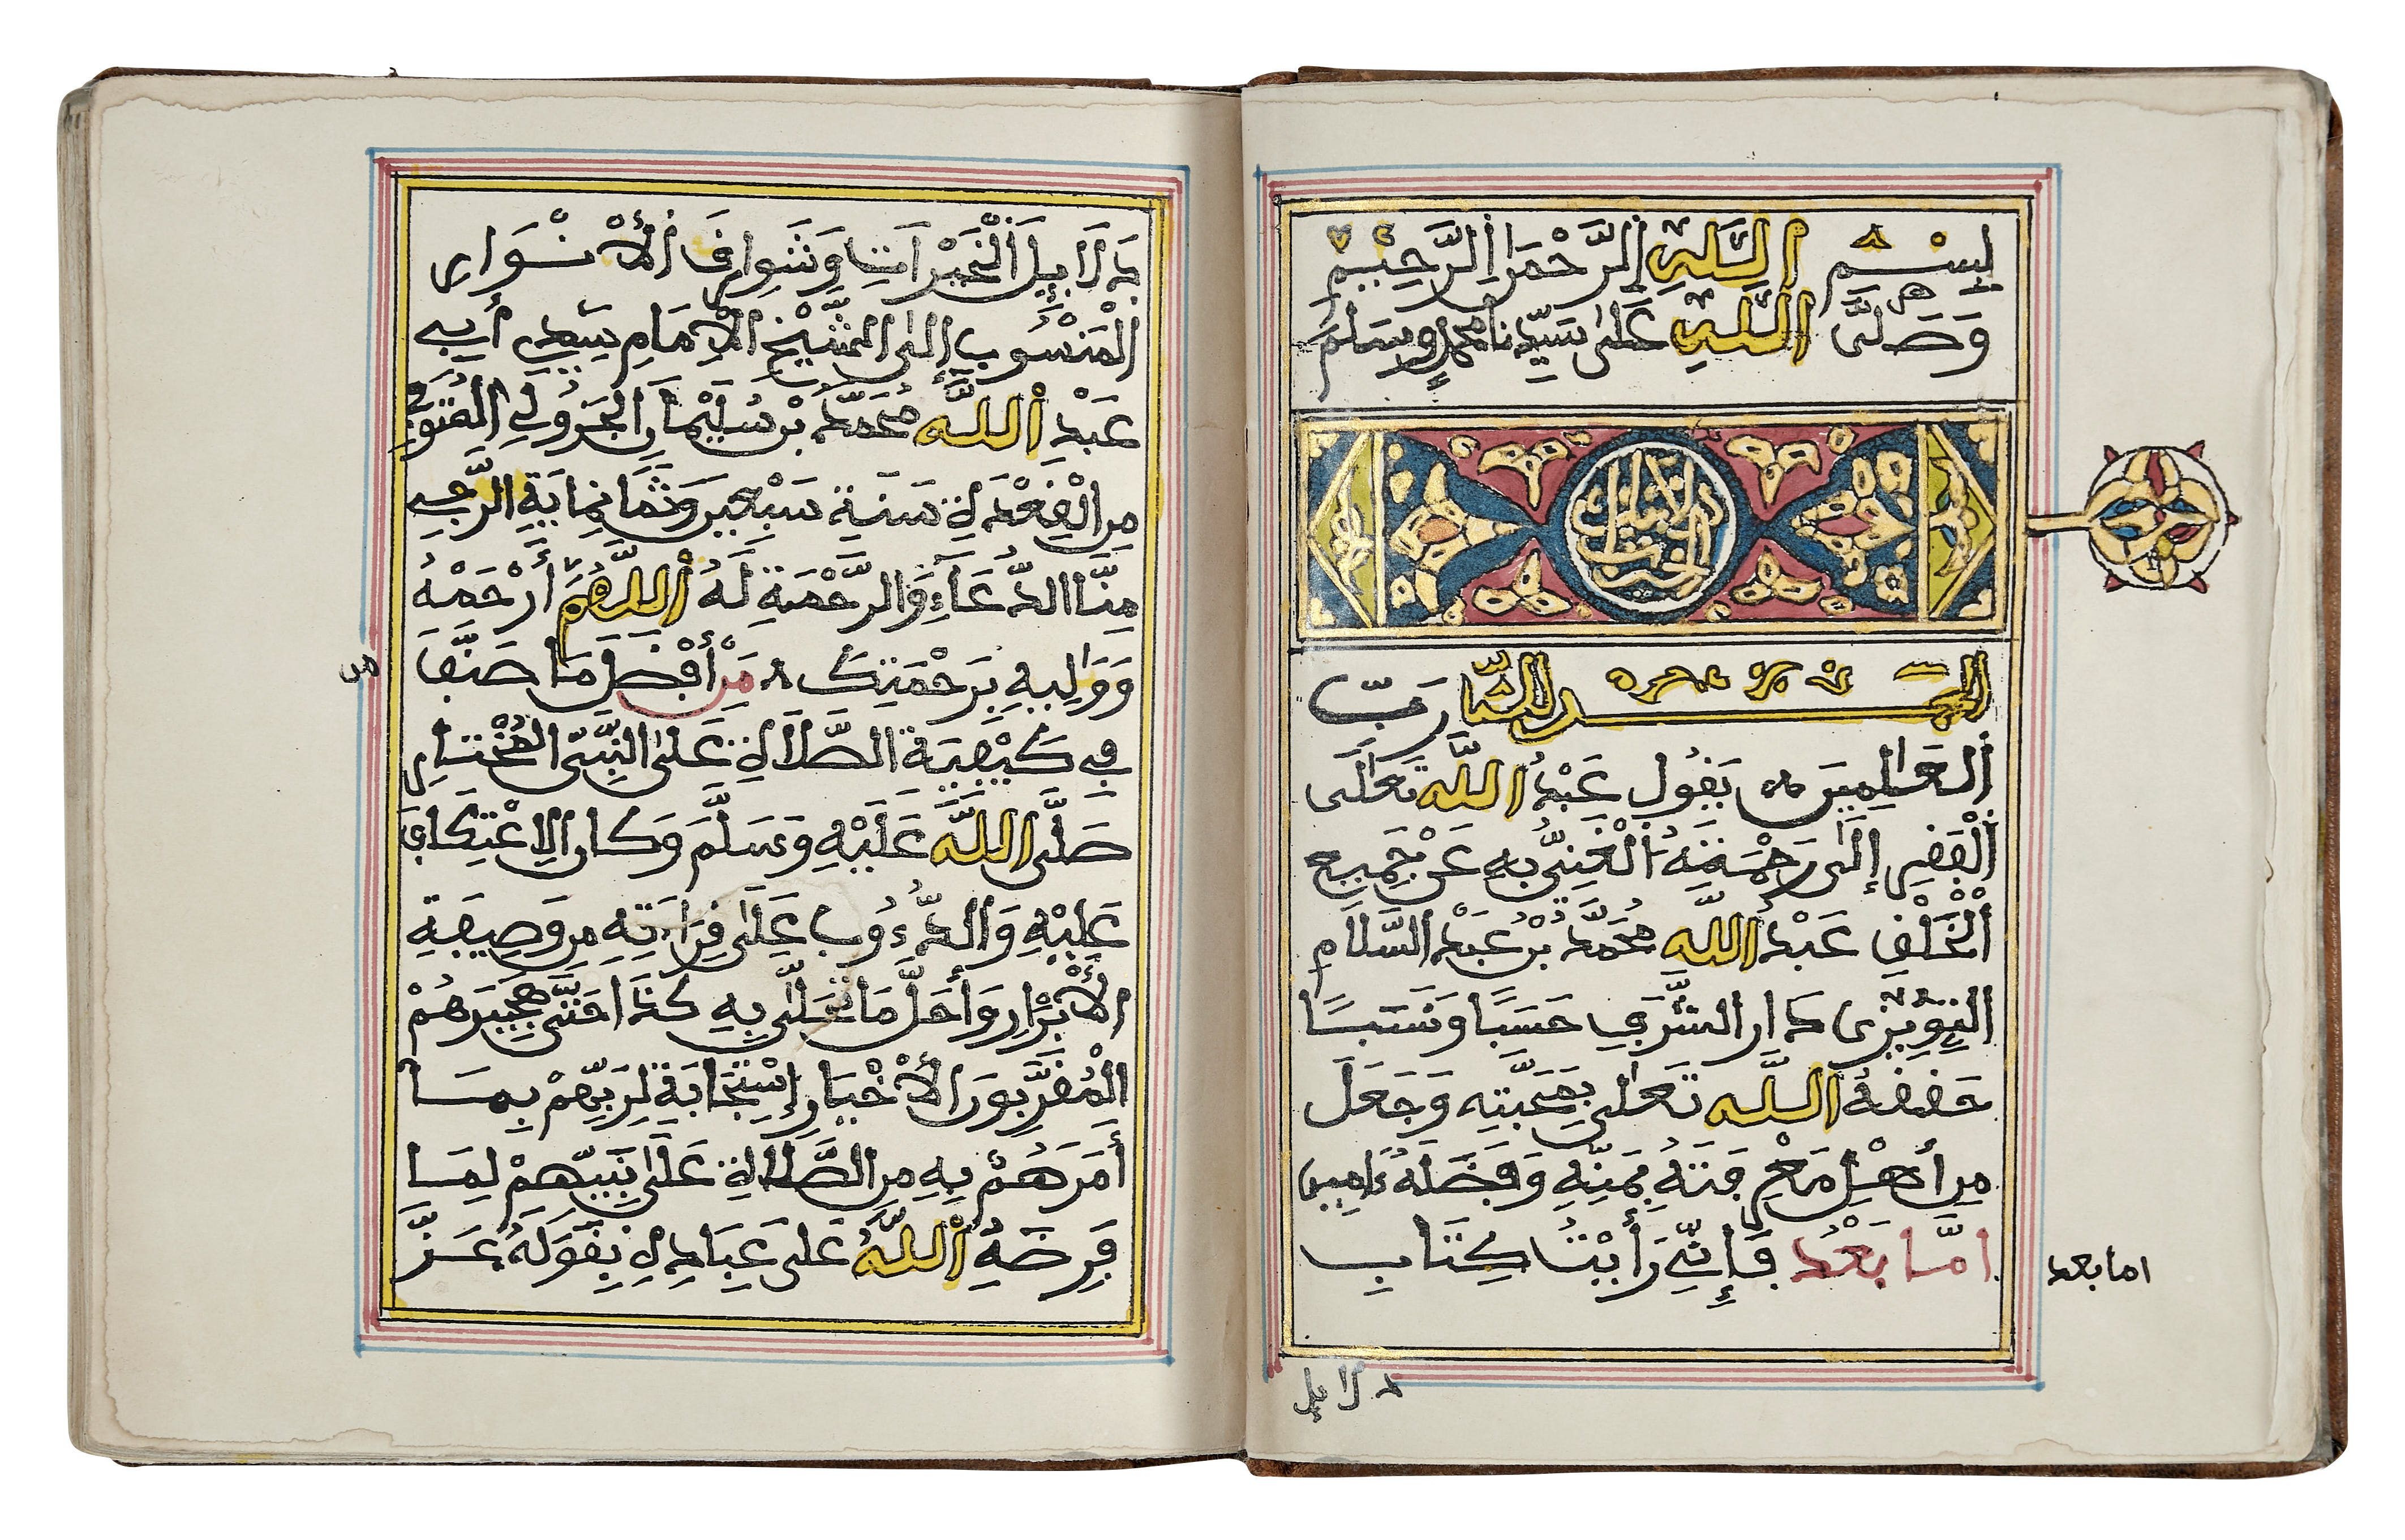 بِسْمِ اللَّهِ الرَّحْمَٰنِ الرَّحِيمِ
وَصَلَّى اللَّهُ عَلَى سَيِّدِنَا مُحَمَّدٍ وَسَلَّمَ
دلائل
الخيرات
الْحَمْدُ لِلَّهِ رَبِّ
الْعَالَمِينَ يَقُولُ عَبْدُ اللَّهِ تَعَالَى
الْفَقِيرُ إِلَى رَحْمَتِهِ الْغَنِيُّ بِهِ عَنْ جَمِيعِ
الْخَلْقِ عَبْدُ اللَّهِ مُحَمَّدُ بْنُ عَبْدِ السَّلَامِ
دار الشَّرَفِي حَسَبًا وَنَسَبًا
حققهُ اللَّه تَعَالَى بِمَحَبَّتِهِ وَجَعَلَ
مِن أَهْلِ بِمَنِّهِ وَفَضْلِهِ ءَامِين
امَّا بَعْدُ فَإِنِّي رَأَيْتُ كِتَابَ
اما بعد
دلايل
دَلَايِلَ الْخَيْرَاتِ وَشَوَارِقَ الْأَنْوَار
الْمَنْسُوبِ إِلَى الشَّيْخِ الْإِمَامِ سَيِّدِي أَبِي
عَبْدِ اللَّهِ مُحَمَّدْ بْنِ سُلَيْمَانَ الْجَزُولِي الْمُتَوَفَّى
مِن الْقِعْدَةِ سَنَةِ سَبْعِينَ وَثَمَانِمِايَةٍ الرَّجِي
مِنَّا الدُّعَاءَ وَالرَّحْمَةِ لَهُ اللَّهُمَّ أَرْحَمْهُ
وَوَالِيهِ بِرَحْمَتِكَ مَنْ أَفْضَلِ مَا صَنَّفَ
فِي كَيْفِيَّةِ الصَّلَاةِ عَلَى النَّبِيِّ الْمُخْتَارِ
صَلَّى اللَّهُ عَلَيْهِ وَسَلَّمَ وَكَان الِاعْتِكَافُ
عَلَيْهِ وَالدُّءُوبُ عَلَى قِرَاءَتِهِ مِن وَظِيفَةِ
الْأَبْرَارِ وَأَحَلَّ مَا تَحَلَّى بِهِ كَذَا
الْمُقَرَّبُونَ الْأَخْيَار إِسْتِجَابَةً لِرَبِّهِمْ بِمَا
أَمَرَهُمْ بِهِ مِن الصَّلَاةِ عَلَى نَبِيِّهِمْ لِمَا
فَرَضَهُ اللَّهُ عَلَى عِبَادِهِ بِقَوْلِهِ عَزَّ
من